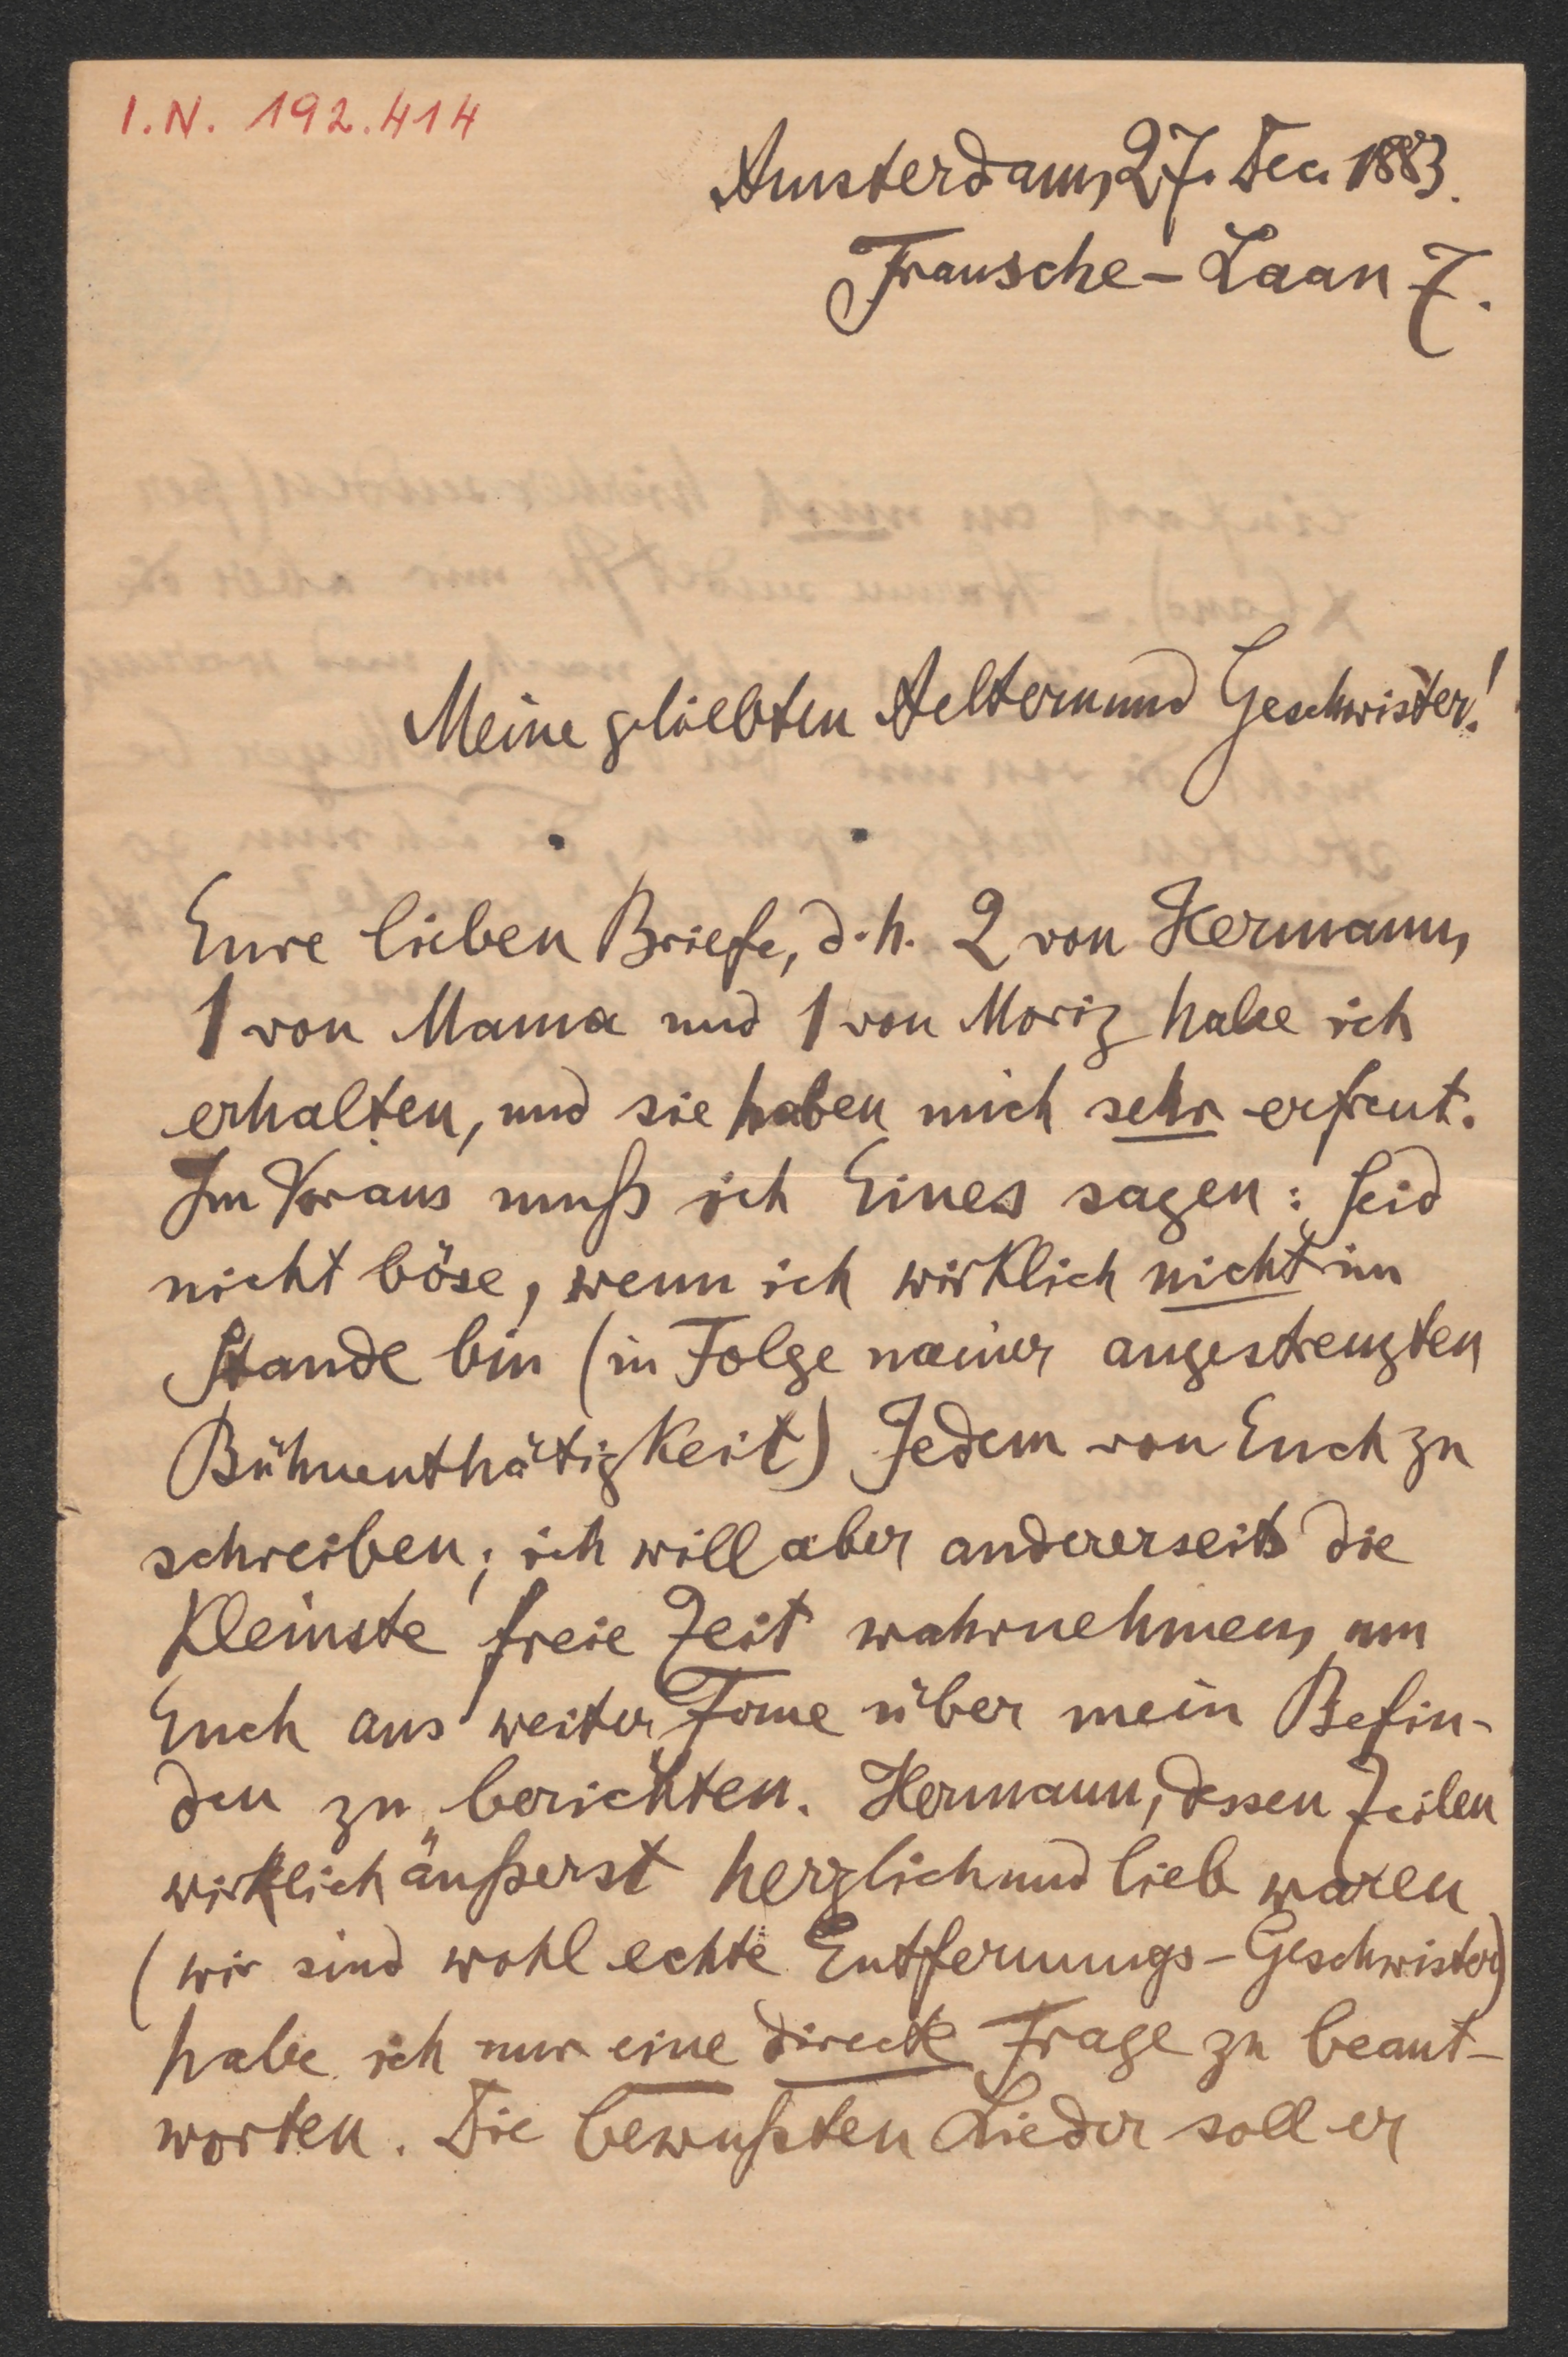 I.N. 192.414
Amsterdam, 27. Dec. 1883.
Fransche-Laan 7.
Meine geliebten Aeltern und Geschwister!
Eure lieben Briefe, d.h. 2 von Hermann,
1 von Mama und 1 von Moriz habe ich
erhalten, und sie haben mich sehr erfreut.
Im Voraus muß ich Eines sagen: Seid
nicht böse, wenn ich wirklich nicht im
Stande bin (in Folge meiner angestrengten
Bühnenthätigkeit) Jedem von Euch zu
schreiben; ich will aber andererseits die
kleinste freie Zeit wahrnehmen, um
Euch aus weiter Ferne über mein Befin-
den zu berichten. Hermann, dessen Zeilen
wirklich äußerst herzlich und lieb waren
(wir sind wohl echte Entfernungs-Geschwister)
habe ich nur eine directe Frage zu beant-
worten. Die bewußten Lieder soll er